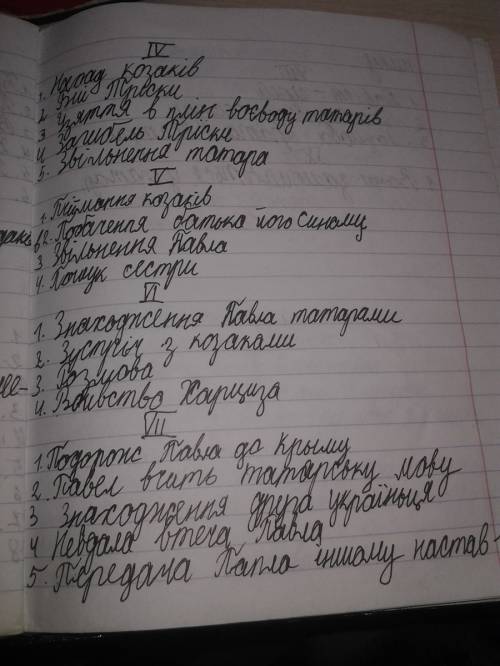 IV
1. Напад козаків
2. Дій Тріски
3 Узяття в плін воєводу татарів
4 Загибель Тріски
5. Звільнення татара
V
1. Піймання козаків
2. Побачення батька його синому
3 Звільнення Павла
4. Пошук сестри
VI
1. Знаходження Павла татарами
2. Зустріч з козаками
3. Розмова
4. Вбивство Харциза
VII
1. Подорож Павла до Крыму
2. Павел вчить татарську мову
3 Знаходження друга українця
4 Невдала втеча Павла
5. Передача Папла іншому настав-